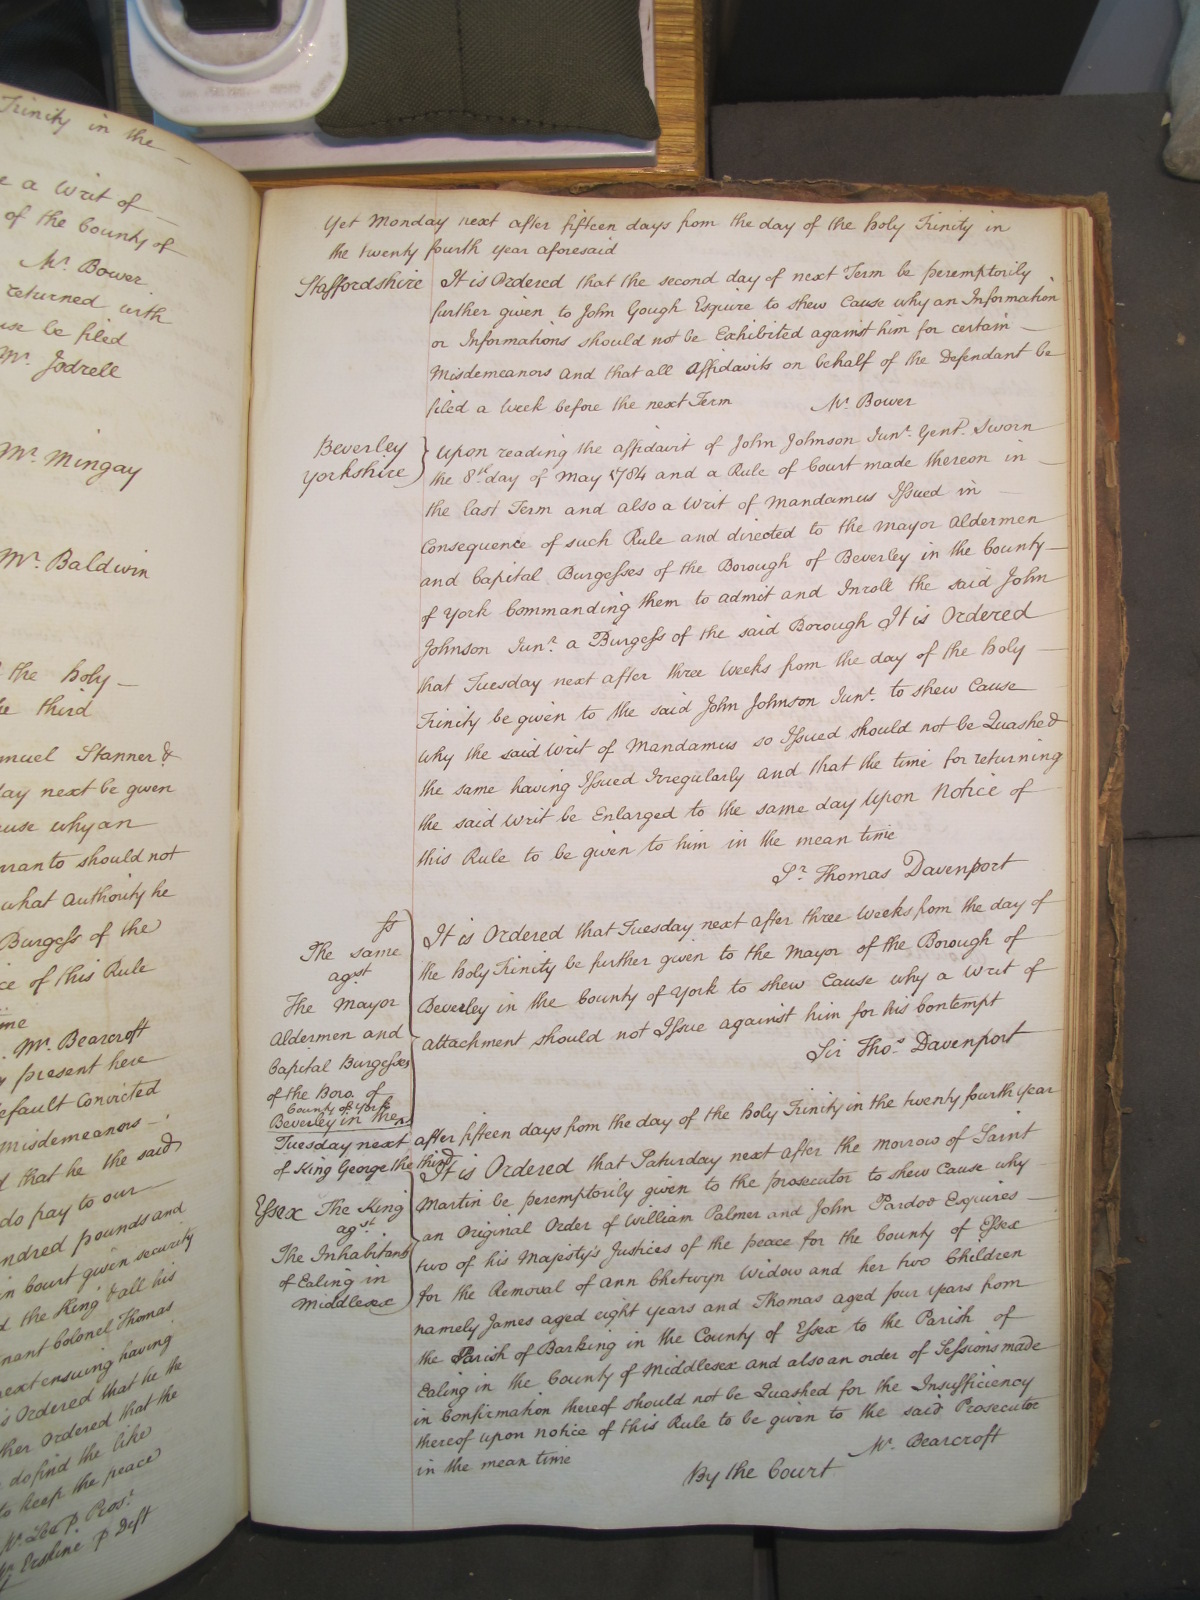 Trinity in the
a Writ of
of the County of
Mr. Bower
returned with
be filed
Mr. Jodrell
Mr. Mingay
Mr. Baldwin
the holy
third
Samuel Stanner &
day next be given
cause why an
Warranto should not
what authority he
Burgess of the
of this Rule
Mr. Bearcroft
present here
default Convicted
Misdemeanors
that he the said
do pay to our
hundred pounds and
in Court given security
the King & all his
Colonel Thomas
next ensuing having
is Ordered that he the
further Ordered that the
do find the like
to keep the peace
Mr. Lee P. Prosr.
Mr. Erskine P Deft
Yet Monday next after fifteen days from the day of the holy Trinity in
the twenty fourth year aforesaid
Staffordshire It is Ordered that the second day of next Term be peremptorily
further given to John Gough Esquire to shew Cause why an Information
or Informations should not be Exhibited against him for certain
Misdemeanors and that all Affidavits on behalf of the Defendant be
filed a Week before the next Term Mr. Bower
Beverley
Yorkshire
Upon reading the affidavit of John Johnson Junr. Gent. Sworn
the 8th day of May 1784 and a Rule of Court made thereon in
the last Term and also a Writ of Mandamus Issued in
Consequence of such Rule and directed to the Mayor Aldermen
and Capital Burgesses of the Borough of Beverley in the County
of York Commanding them to admit and Inroll the said John
Johnson Junr. a Burgess of the said Borough It is Ordered
that Tuesday next after three Weeks from the day of the holy
Trinity be given to the said John Johnson Junr. to shew Cause
why the said Writ of Mandamus so Issued should not be Quashed
the same having Issued Irregularly and that the time for returning
the said Writ be Enlarged to the same day Upon Notice of
this Rule to be given to him in the mean time
Sr. Thomas Davenport
ss
The same
agst
The Mayor
Aldermen and
Capital Burgesses
of the Boro. of
Beverley in the
County of York
It is Ordered that Tuesday next after three Weeks from the day of
the holy Trinity be further given to the Mayor of the Borough of
Beverley in the County of York to shew Cause why a Writ of
attachment should not Issue against him for his Contempt
Sir Thos. Davenport
Tuesday next after fifteen days from the day of the holy Trinity in the twenty fourth year
of King George the third
Essex The King
agst.
The Inhabitants
of Ealing in
Middlesex
It is Ordered that Saturday next after the morrow of Saint
Martin be peremptorily given to the prosecutor to shew Cause why
an Original Order of William Palmer and John Pardoe Esquires
two of his Majesty's Justices of the peace for the County of Essex
for the Removal of Ann Chetwyn Widow and her two Children
namely James aged eight years and Thomas aged four years from
the Parish of Barking in the County of Essex to the Parish of
Ealing in the County of Middlesex and also an order of Sessions made
in Confirmation thereof should not be Quashed for the Insufficiency
thereof upon notice of this Rule to be given to the said Prosecutor
in the mean time Mr. Bearcroft
By the Court